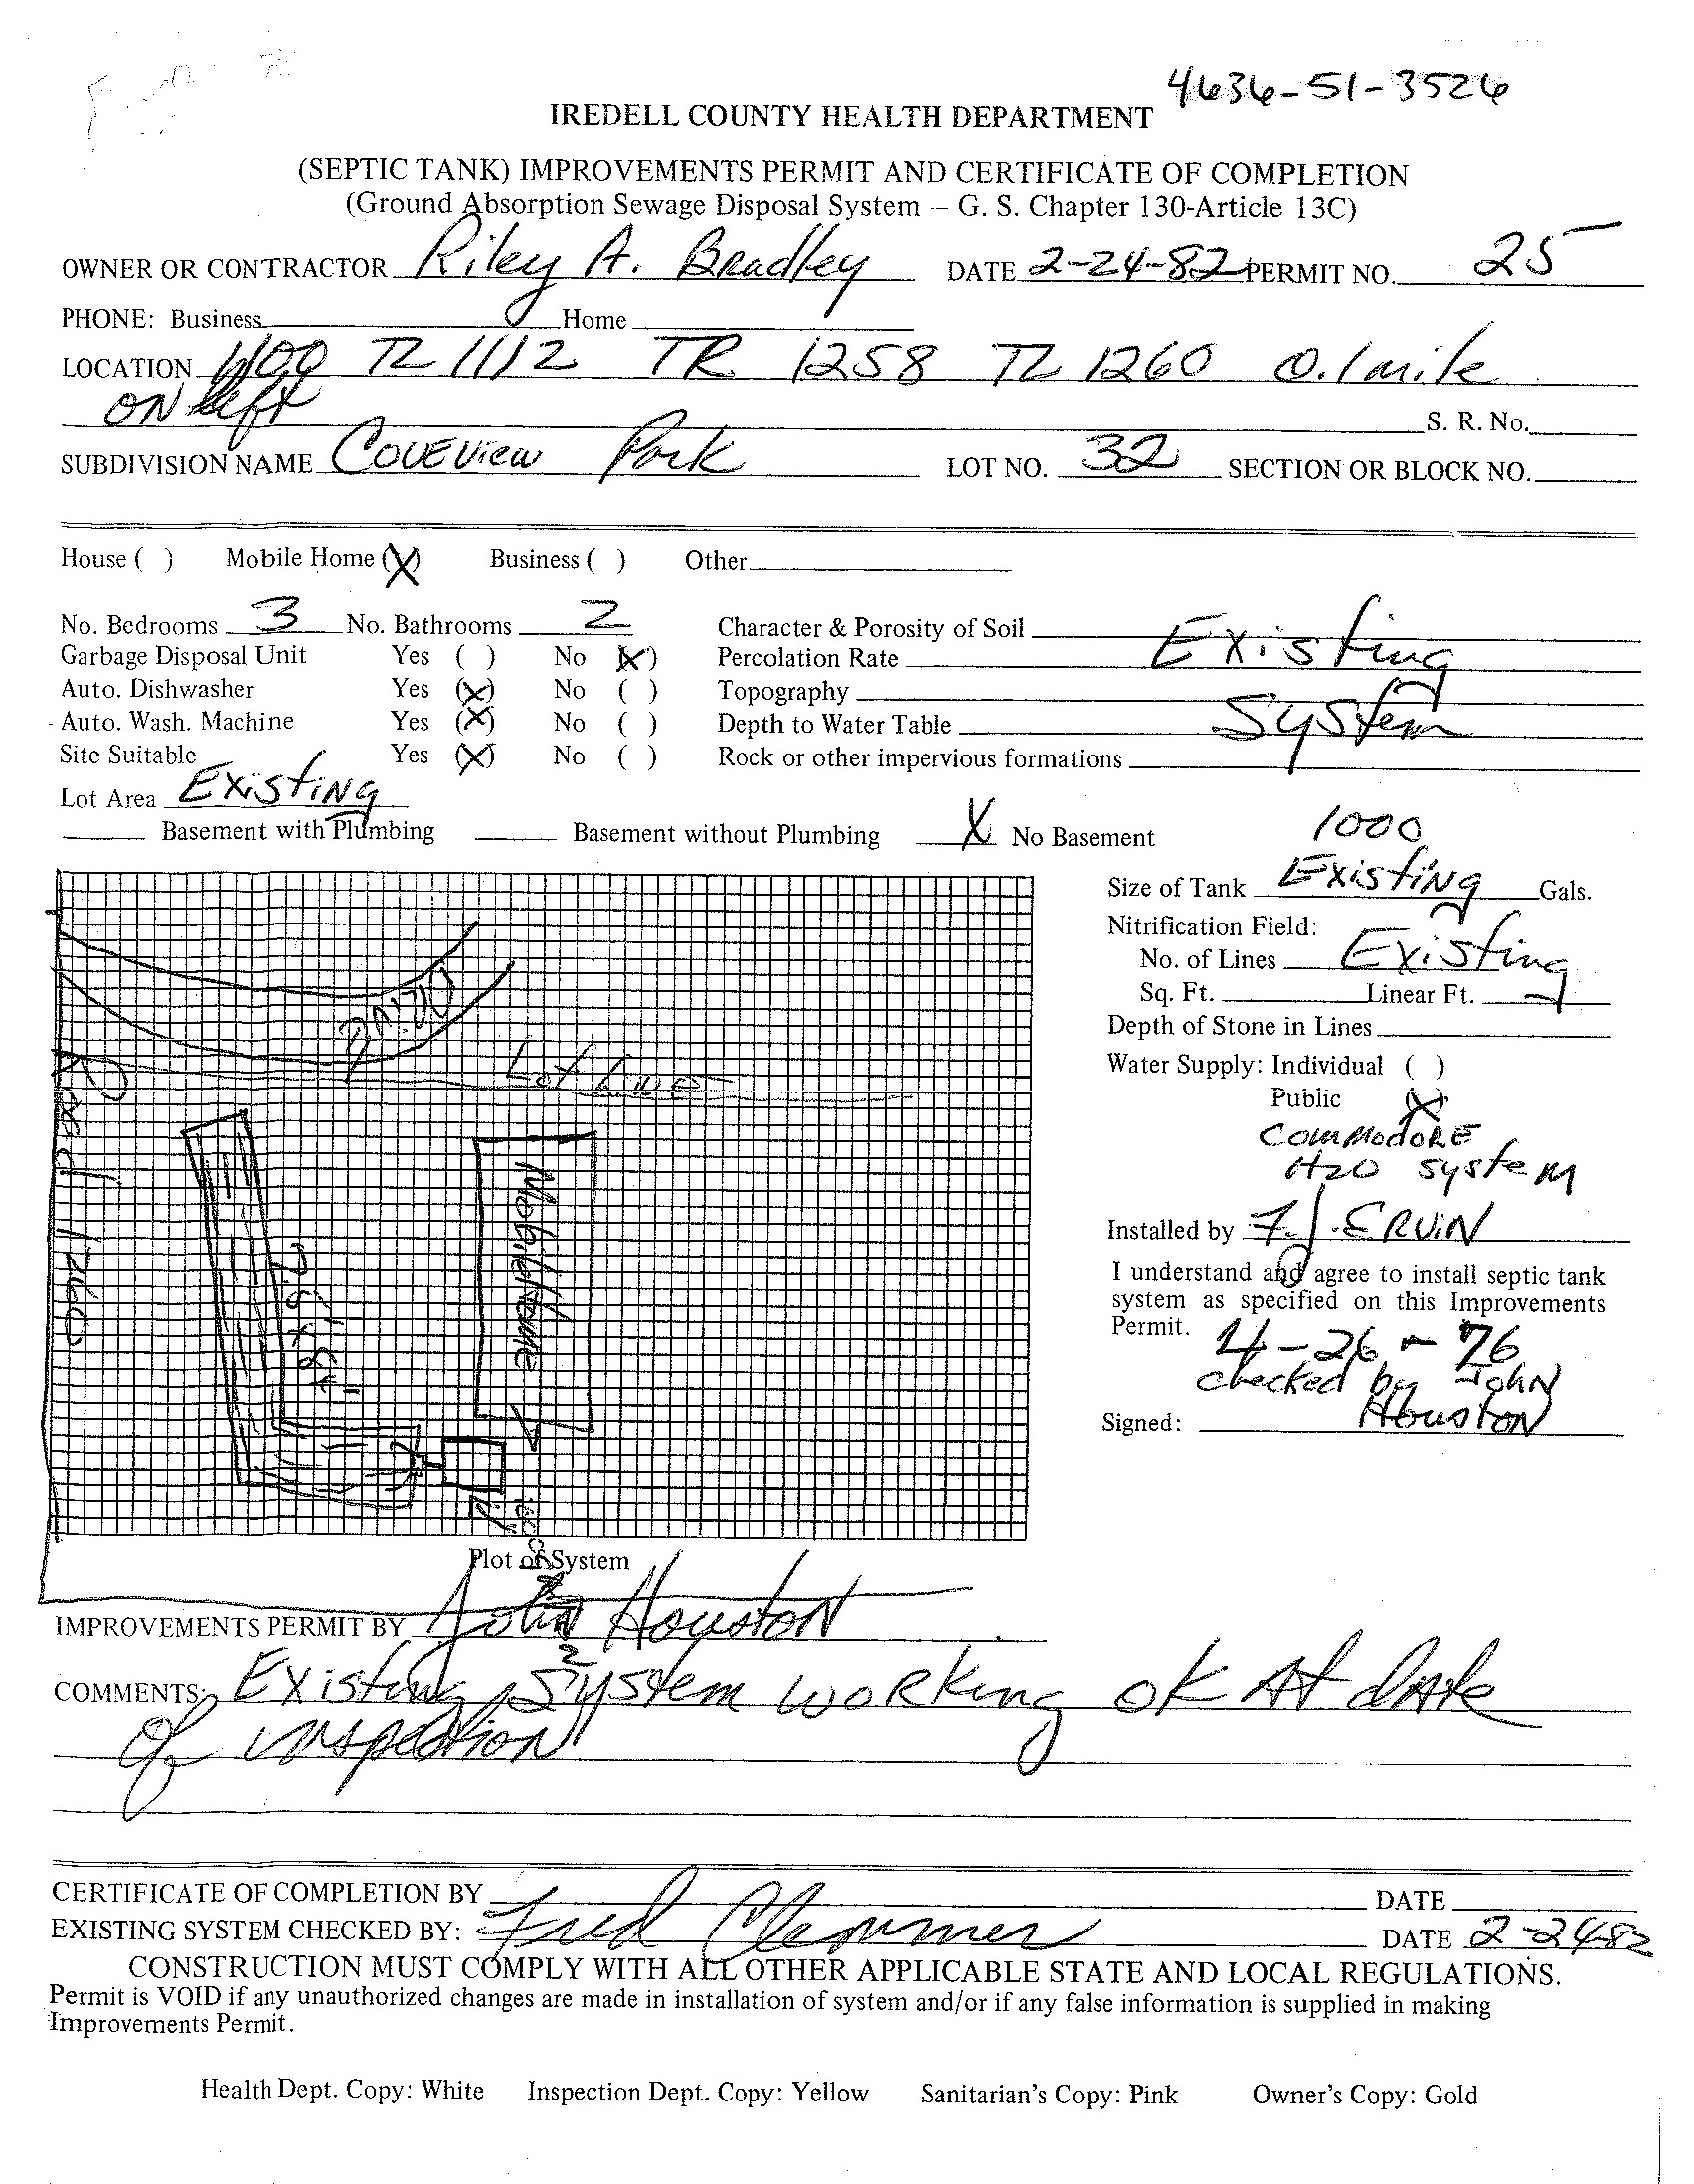 4636-51-3526
IREDELL COUNTY HEALTH DEPARTMENT
(SEPTIC TANK) IMPROVEMENTS PERMIT AND CERTIFICATE OF COMPLETION
(Ground Absorption Sewage Disposal System – G. S. Chapter 130-Article 13C)
OWNER OR CONTRACTOR Riley A. Bradley DATE 2-24-82 PERMIT NO. 25
PHONE: Business Home
LOCATION TL 1112 TR 1258 TL 1260 0.1 mile
ON left S. R. No.
SUBDIVISION NAME COVEView Park LOT NO. 32 SECTION OR BLOCK NO.
House ( ) Mobile Home (X) Business ( ) Other
No. Bedrooms 3 No. Bathrooms 2 Character & Porosity of Soil
Garbage Disposal Unit Yes ( ) No (X) Percolation Rate Existing
Auto. Dishwasher Yes (X) No ( ) Topography
Auto. Wash. Machine Yes (X) No ( ) Depth to Water Table System
Site Suitable Yes (X) No ( ) Rock or other impervious formations
Lot Area Existing
Basement with Plumbing Basement without Plumbing X No Basement
1000
Size of Tank Existing Gals.
Nitrification Field:
No. of Lines Existing
Sq. Ft. Linear Ft.
Depth of Stone in Lines
Water Supply: Individual ( )
Public (X)
COMMODORE
H2O System
Installed by F.J. ERVIN
I understand and agree to install septic tank
system as specified on this Improvements
Permit.
4-26-76
checked by John
Houston
Signed:
Drive
Lot Lines
Road 1260
Mobile Home
Plot of System
IMPROVEMENTS PERMIT BY John Houston
COMMENTS: Existing System working ok At date
of inspection
CERTIFICATE OF COMPLETION BY DATE
EXISTING SYSTEM CHECKED BY: Fred Clemmer DATE 2-24-82
CONSTRUCTION MUST COMPLY WITH ALL OTHER APPLICABLE STATE AND LOCAL REGULATIONS.
Permit is VOID if any unauthorized changes are made in installation of system and/or if any false information is supplied in making
Improvements Permit.
Health Dept. Copy: White Inspection Dept. Copy: Yellow Sanitarian's Copy: Pink Owner's Copy: Gold